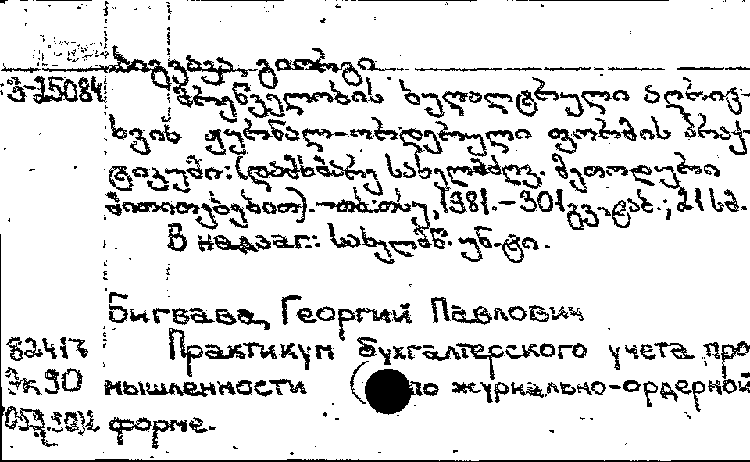 ბიგვავა, გიორგი
3-25084 მრეწველობის ბუღალტრული აღრიც-
ხვის ჟურნალ-ორდერული ფორმის პრაქ-
ტიკუმი: (დამხმარე სახელმძღვ. მეთოდური
მითითებებით). - თბ.: თსუ, 1981. - 301 გვ. ტაბ.; 21 სმ.
В надзаг.: სახელმწ. უნ-ტი.
Бигвава, Георгий Павлович
82417 Практикум бухгалтерского учета про
ЭК90 мышленности по журнально-ордерной
форме.